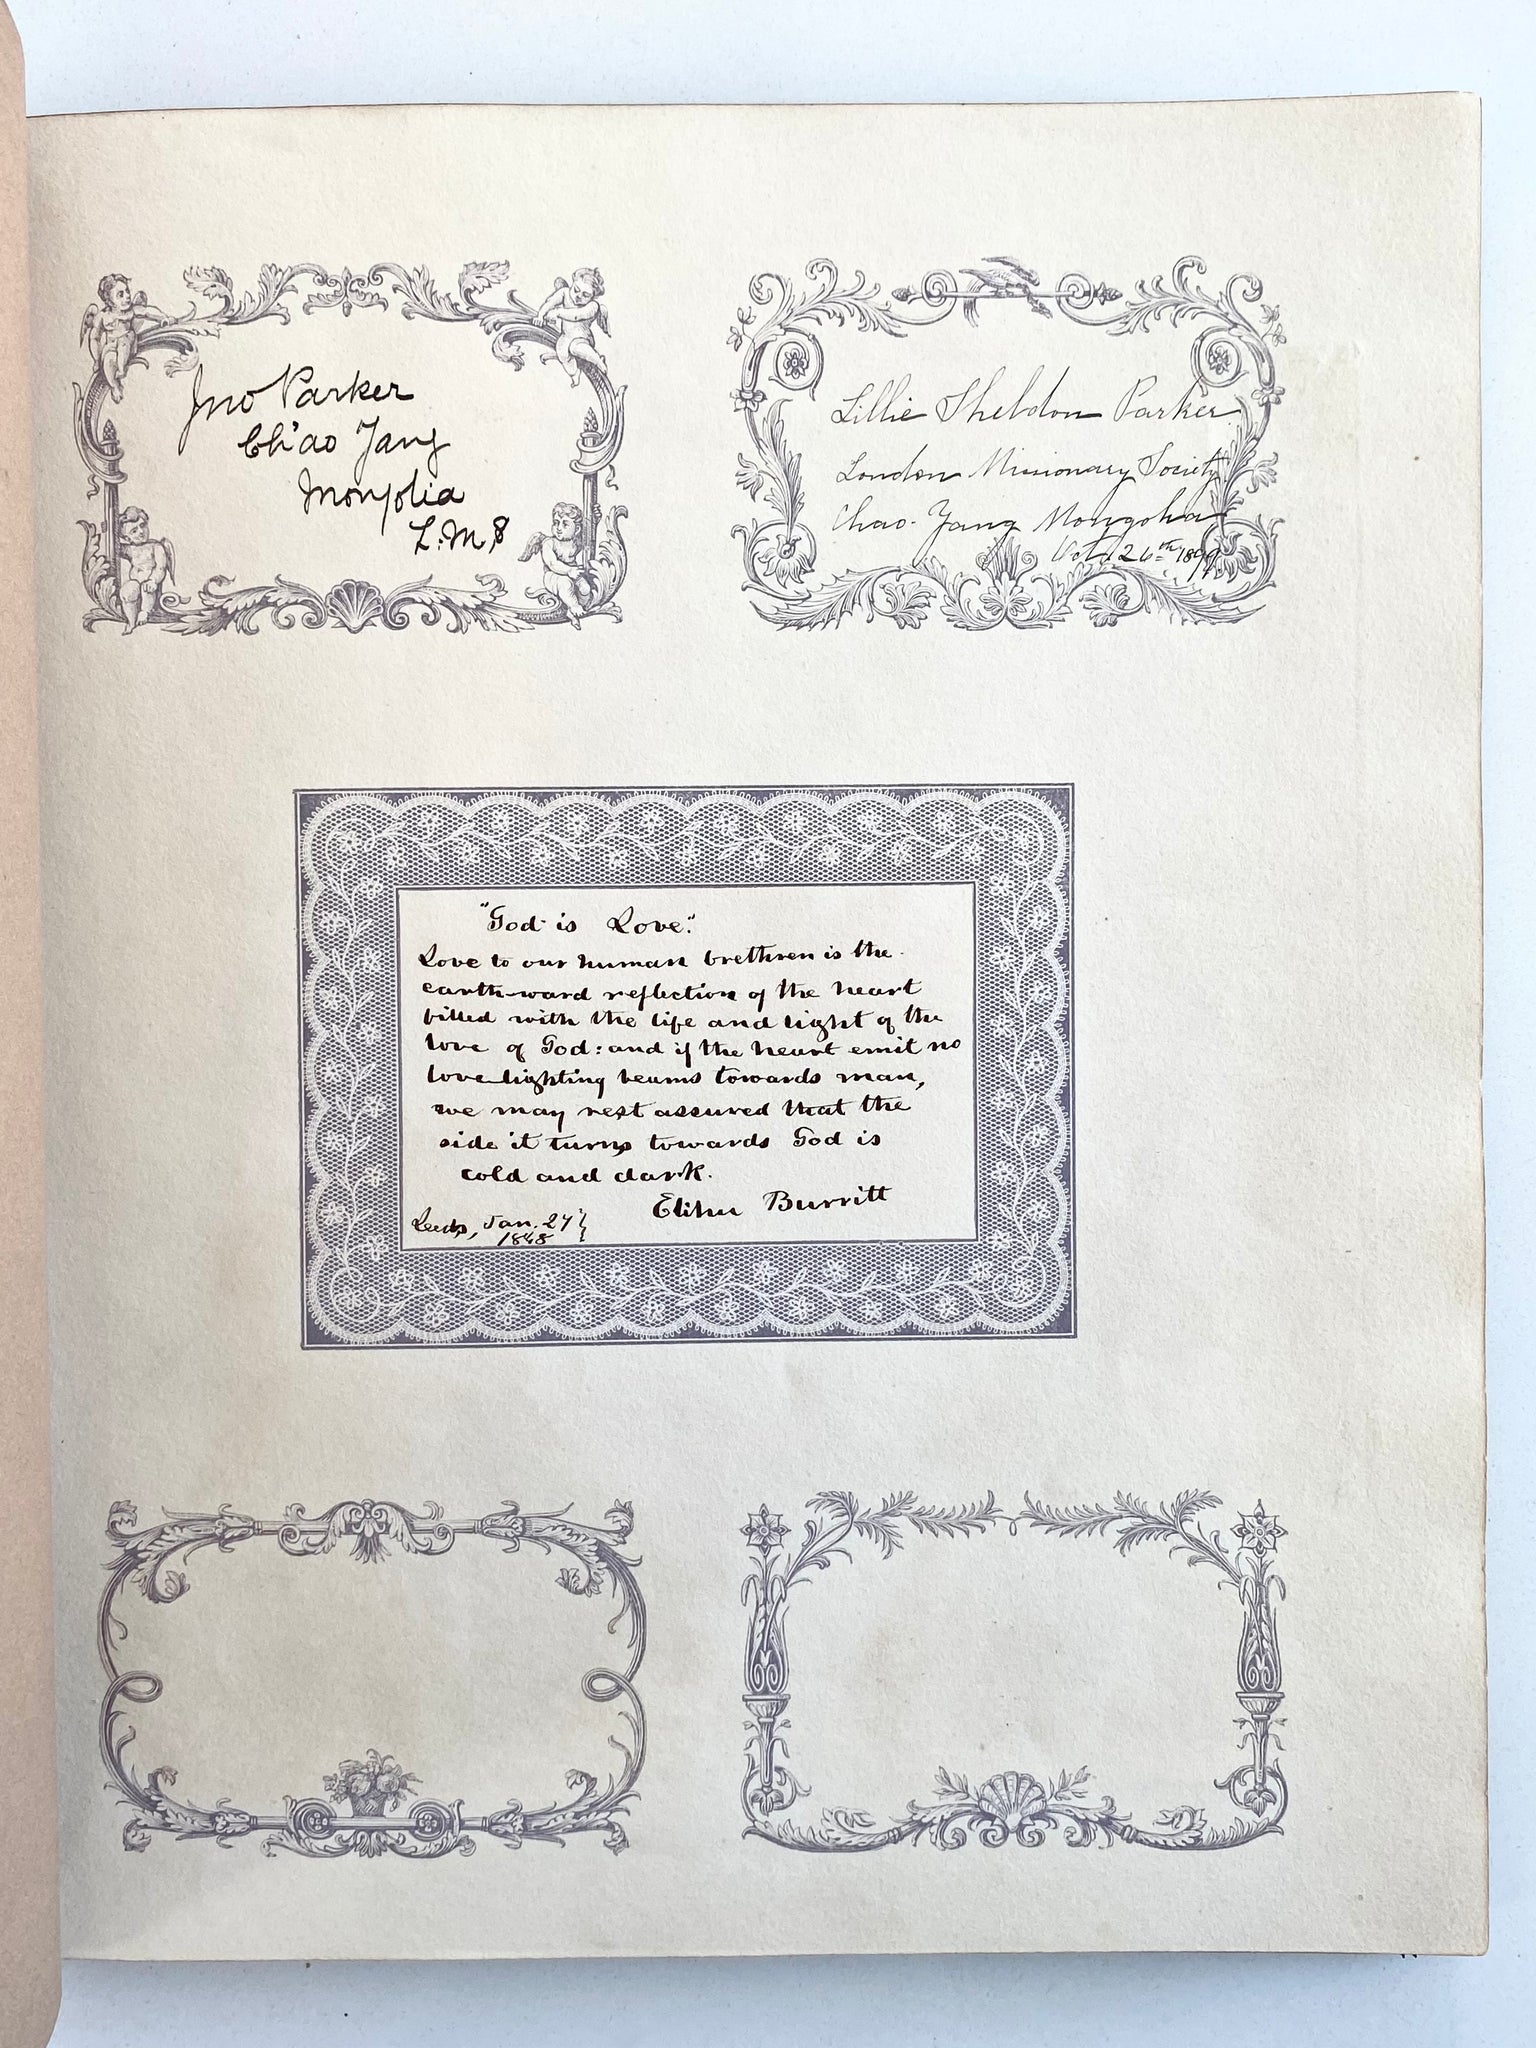 Jno Parker
Ch'ao Yang
Mongolia
L.M.S
Lillie Sheldon Parker
London Missionary Society
Chao-Yang Mongolia
Oct. 26th 1899
"God is Love."
Love to our human brethren is the
earth-ward reflection of the heart
filled with the life and light of the
love of God: and if the heart emit no
love-lighting beams towards man,
we may rest assured that the
side it turns towards God is
cold and dark.
Elihu Burritt
Leeds, Jan. 27
1848